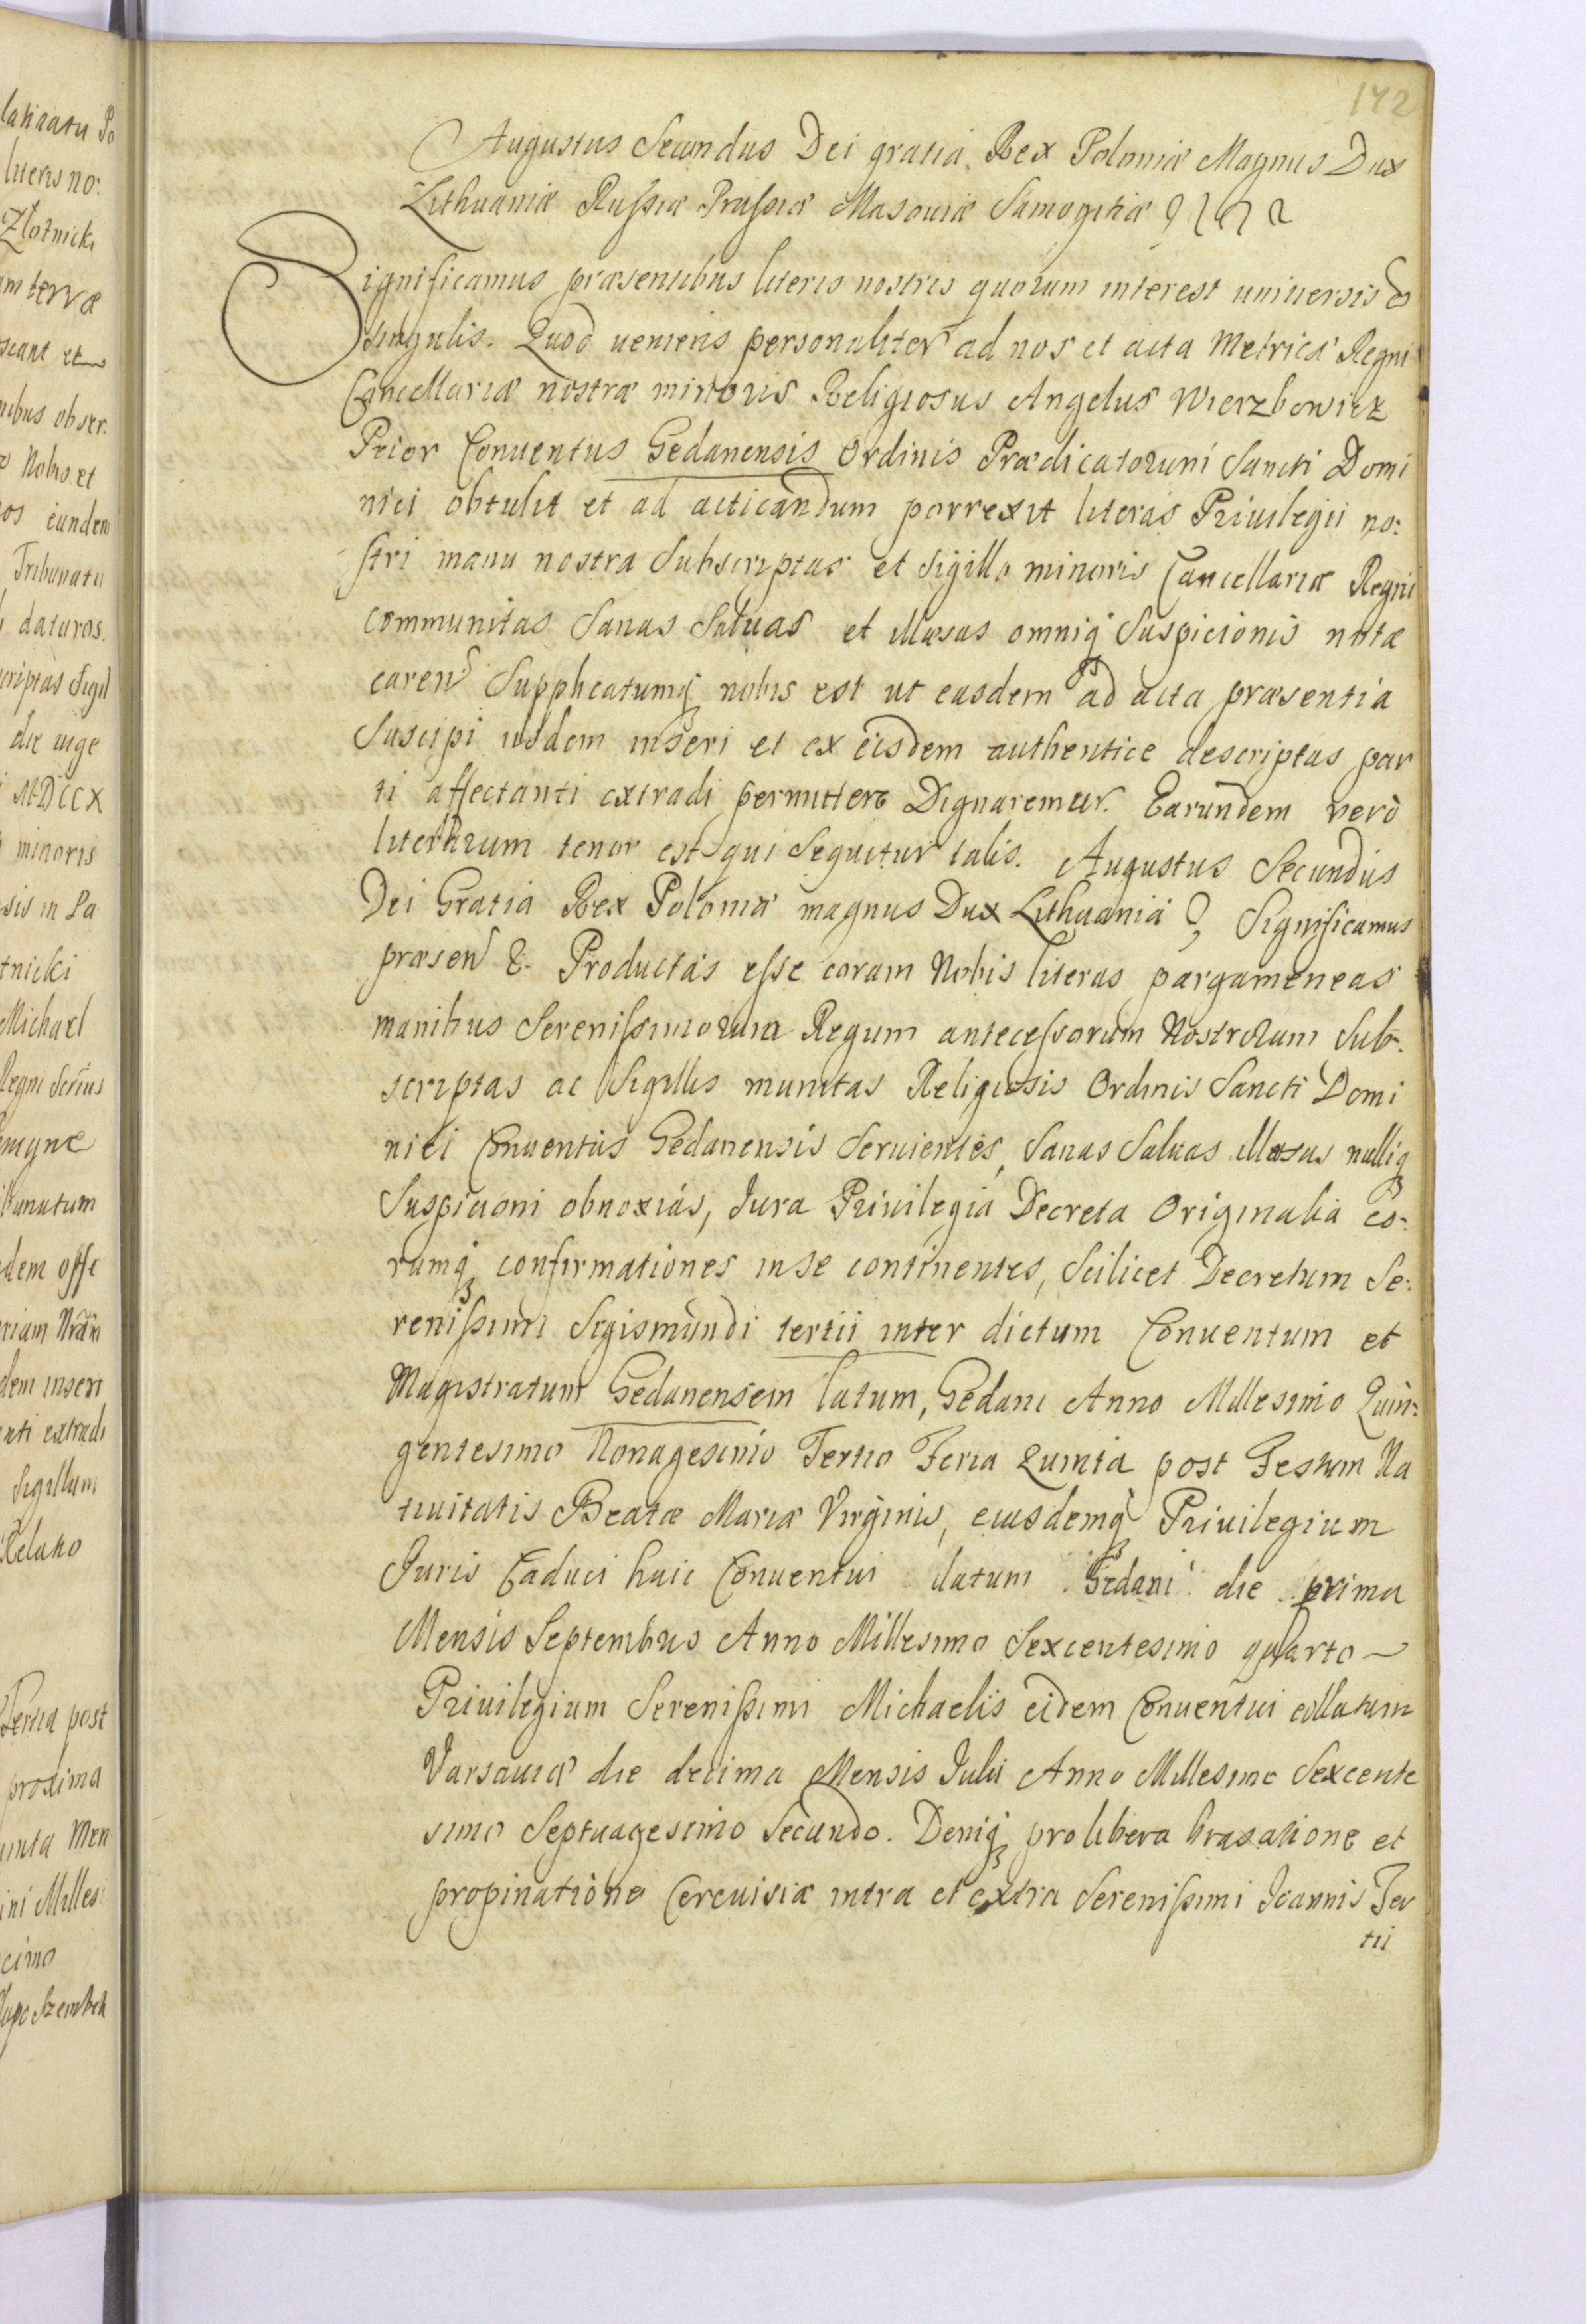 172
Augustus Secundus Dei gratia Rex Poloniæ Magnus Dux
Lithuaniæ Russiæ Prussiæ Masouiæ Samogitiæ
Significamus præsentibus literis nostris quorum interest uniuersis &
singulis. Quod veniens personaliter ad nos et acta Metricæ Regni
Cancellariæ nostræ minoris Religiosus Angelus Wierzbowicz
Prior Conuentus Gedanensis Ordinis Prædicatorum Sancti Domi
nici obtulit et ad acticandum porrexit literas Priuilegii no:
stri manu nostra Subscriptas et Sigillo minoris Cancellariæ Regni
communitas Sanas Saluas et illæsas omniq Suspicionis nota
caren Supplicatumq nobis est ut easdem ad acta præsentia
Suscipi iisdem inseri et ex eisdem authentice descriptas par
ti affectanti extradi permittere Dignaremur. Earundem verò
literarum tenor est qui Sequitur talis. Augustus Secundus
Dei Gratia Rex Poloniæ magnus Dux Lithuaniæ Significamus
præsen &. Productas esse coram Nobis literas pargameneas
manibus Serenissimorum Regum antecessorum Nostrorum Sub:
scriptas ac Sigillis munitas Religiosis Ordinis Sancti Domi
nici Conuentus Gedanensis Seruientes, Sanas Saluas illæsas nulliq
Suspicioni obnoxias, Jura Priuilegia Decreta Originalia eo:
rumq confirmationes in se continentes, Scilicet Decretum Se:
renissimi Sigismundi tertii inter dictum Conuentum et
Magistratum Gedanensem latum, Gedani Anno Millesimo Quin:
gentesimo Nonagesimo Tertio Feria Quinta post Festum Na
tiuitatis Beatæ Mariæ Virginis, eiusdemq Priuilegium
Juris Caduci huic Conuentui datum Gedani die prima
Mensis Septembris Anno Millesimo Sexcentesimo quarto
Priuilegium Serenissimi Michaelis eidem Conuentui collatum
Varsauiæ die decima Mensis Julii Anno Millesimo Sexcente
simo Septuagesimo Secundo. Deniq pro libera braxatione et
propinatione Cereuisiæ intra et extra Serenissimi Joannis Ter
tii